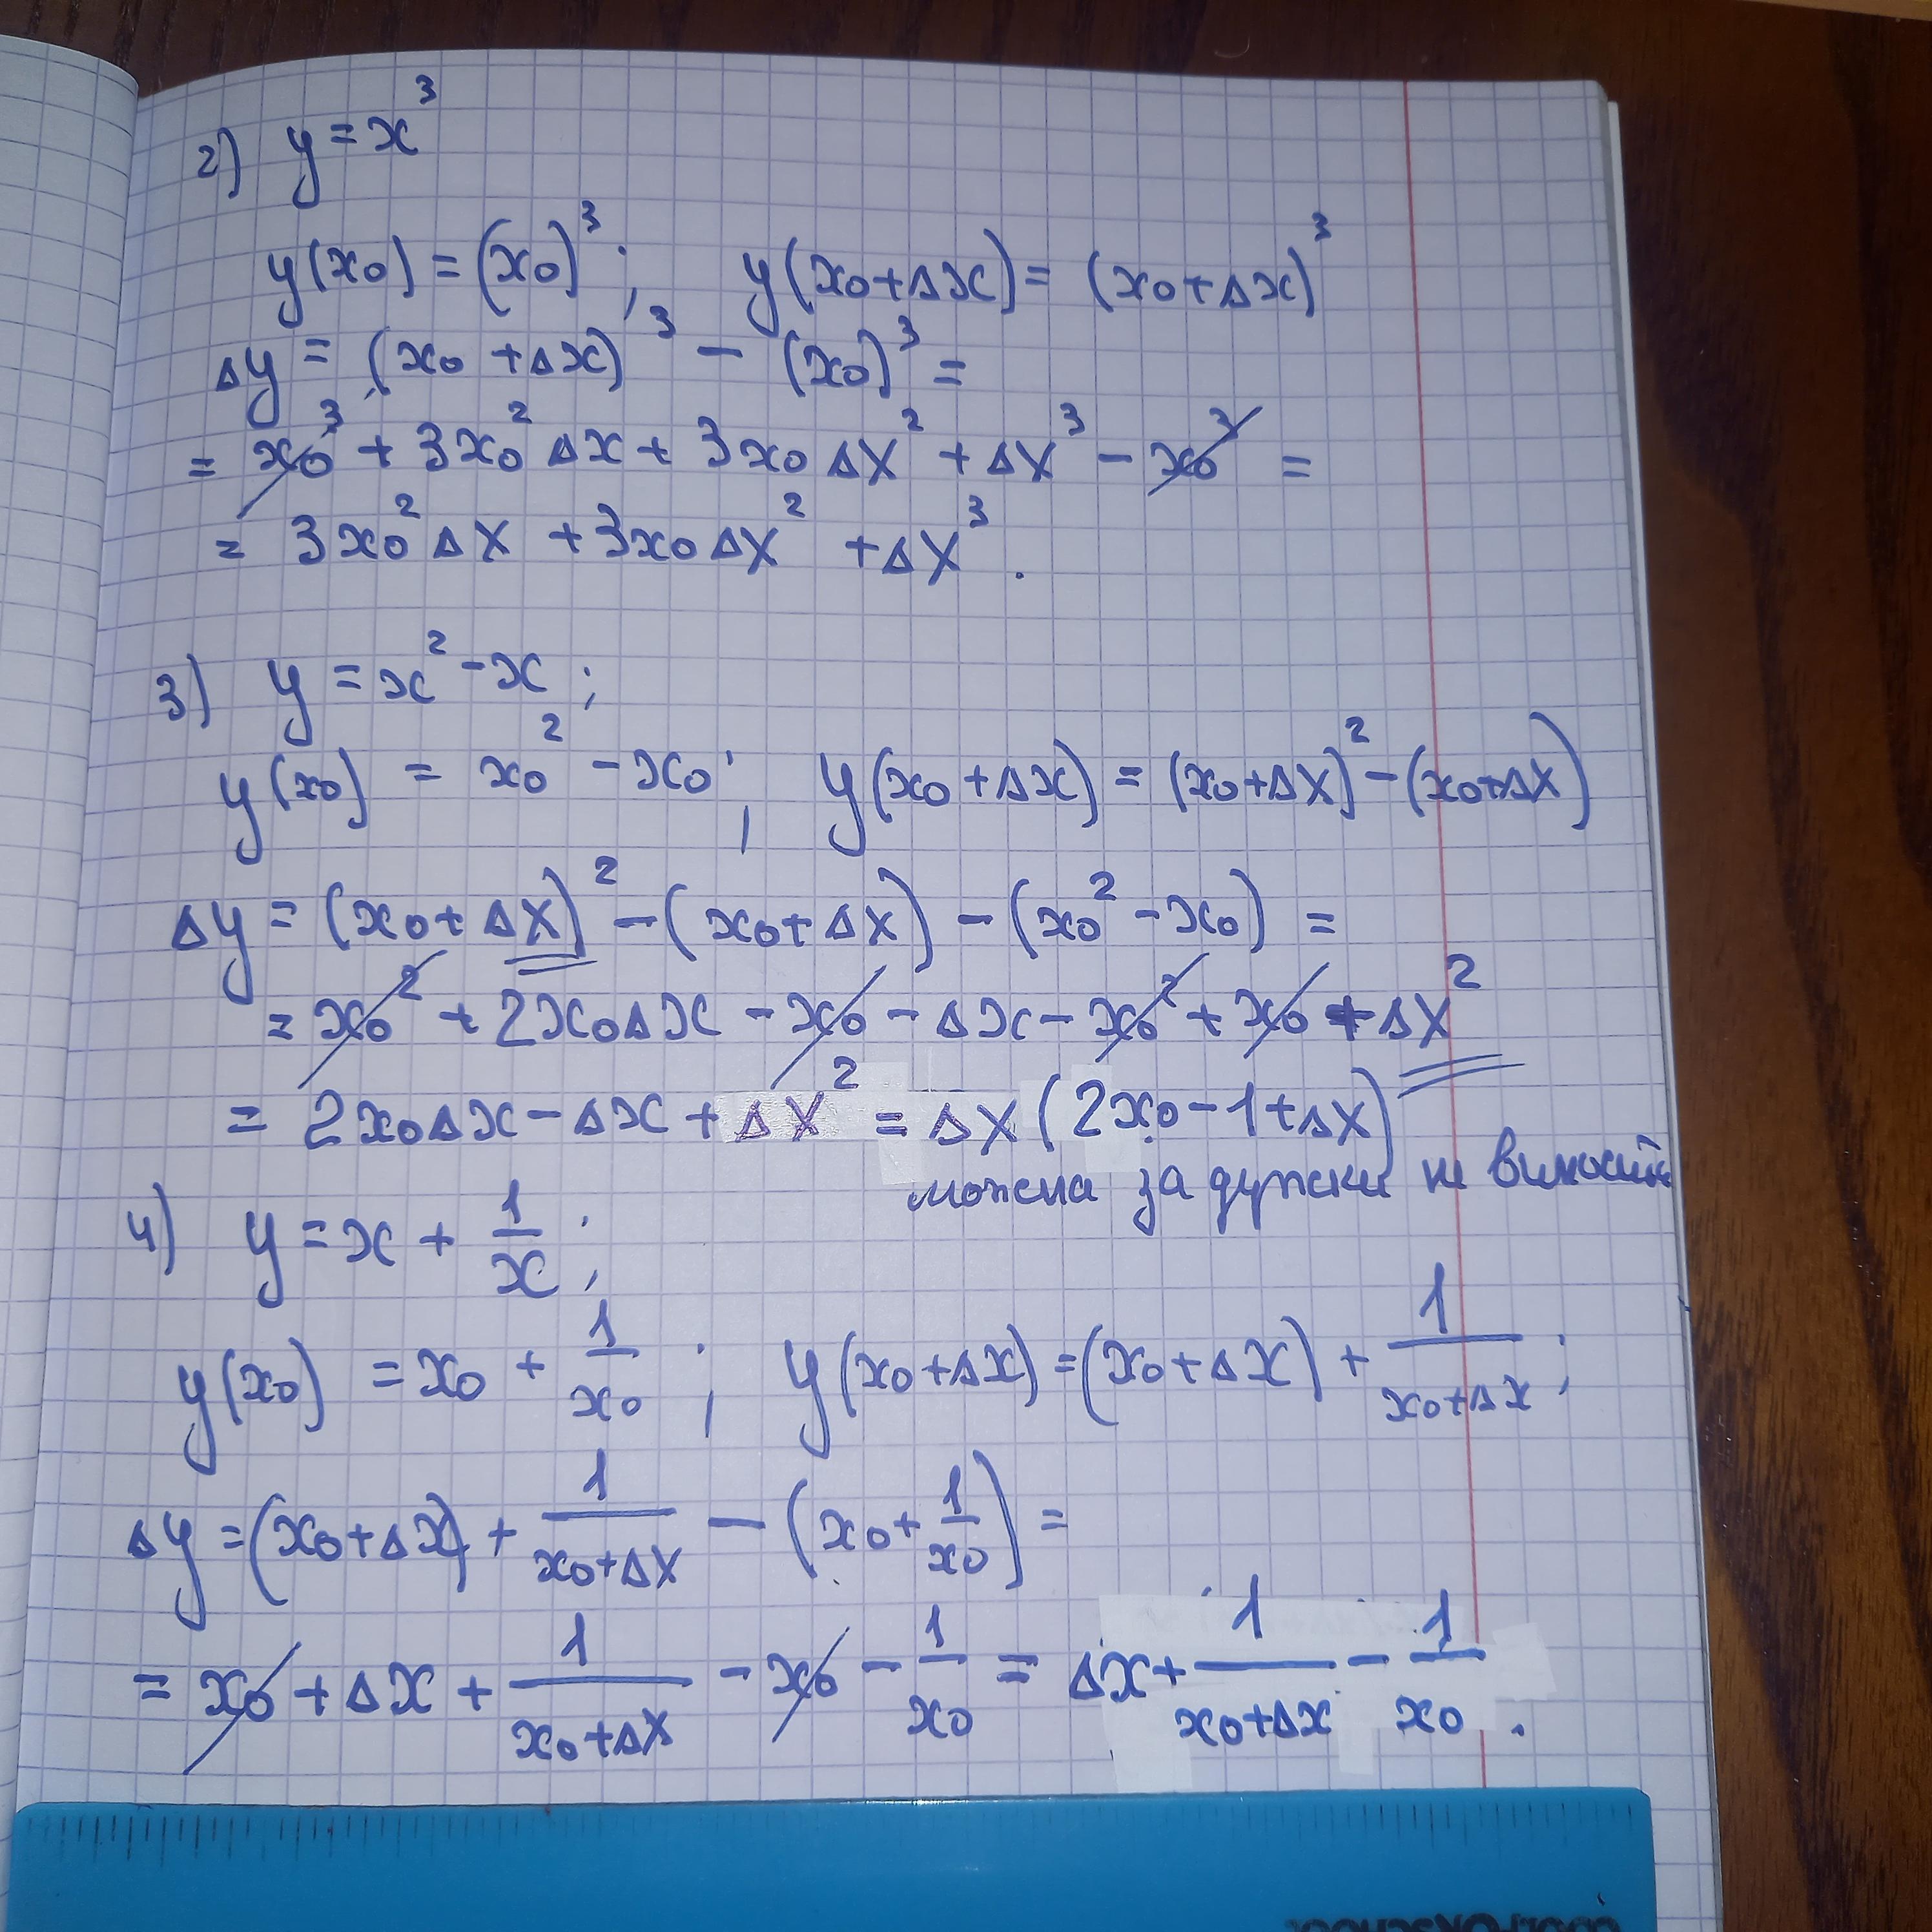 2) y = x³
y(x₀) = (x₀)³; y(x₀+Δx) = (x₀+Δx)³
Δy = (x₀ + Δx)³ − (x₀)³ =
= x₀³ + 3x₀²Δx + 3x₀Δx² + Δx³ − x₀³ =
= 3x₀²Δx + 3x₀Δx² + Δx³.
3) y = x² − x;
y(x₀) = x₀² − x₀; y(x₀+Δx) = (x₀+Δx)² − (x₀+Δx)
Δy = (x₀+Δx)² − (x₀+Δx) − (x₀² − x₀) =
= x₀² + 2x₀Δx − x₀ − Δx − x₀² + x₀ + Δx²
= 2x₀Δx − Δx + Δx² = Δx(2x₀ − 1 + Δx)
можна за дужки не виносить
4) y = x + 1/x;
y(x₀) = x₀ + 1/x₀; y(x₀+Δx) = (x₀+Δx) + 1/(x₀+Δx);
Δy = (x₀+Δx) + 1/(x₀+Δx) − (x₀ + 1/x₀) =
= x₀ + Δx + 1/(x₀+Δx) − x₀ − 1/x₀ = Δx + 1/(x₀+Δx) − 1/x₀.